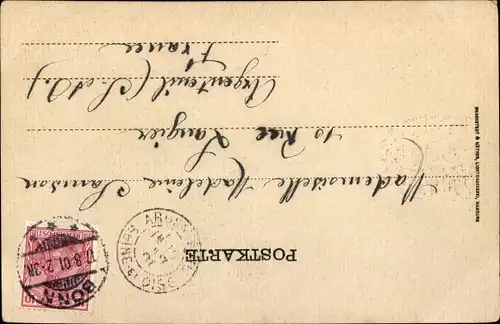 POSTKARTE
Mademoiselle Madeleine Samson
10 Rue Laugier
Argenteuil (S. et O.)
France
BONN
17.8.01. 2-3N
ARGENTEUIL
SEINE-ET-OISE